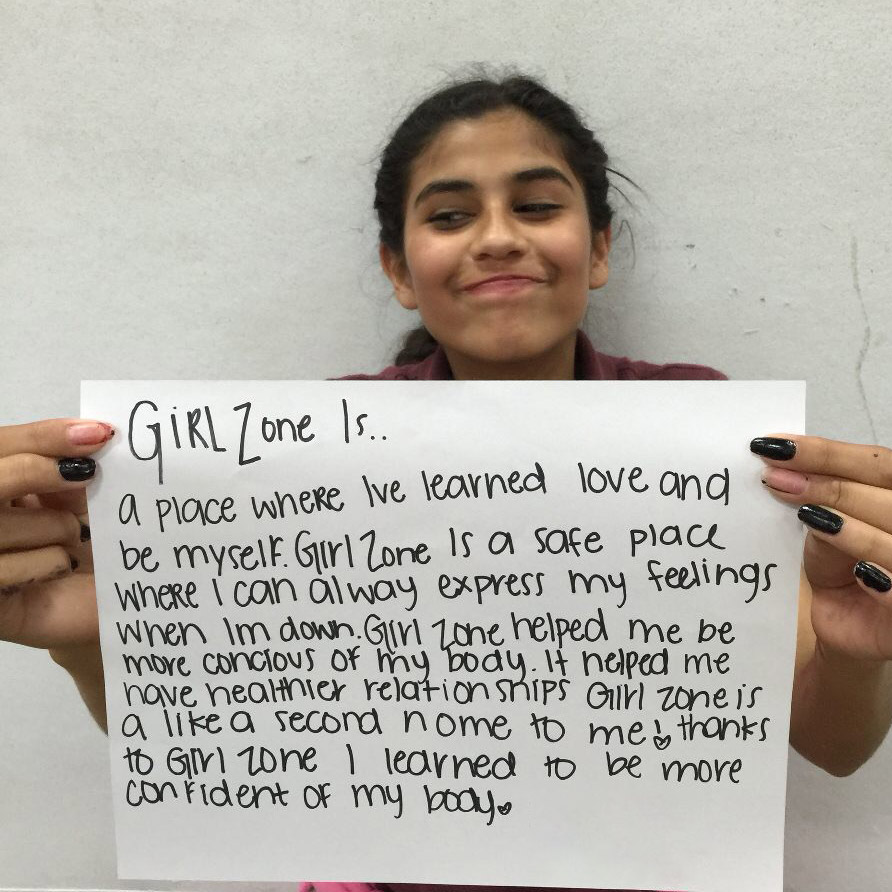 GIRL Zone Is..
a place where Ive learned love and
be myself. Girl Zone Is a safe place
where I can alway express my feelings
when Im down. Girl Zone helped me be
more concious of my body. It helped me
have healthier relationships Girl zone is
a like a second home to me! thanks
to Girl Zone I learned to be more
confident of my body